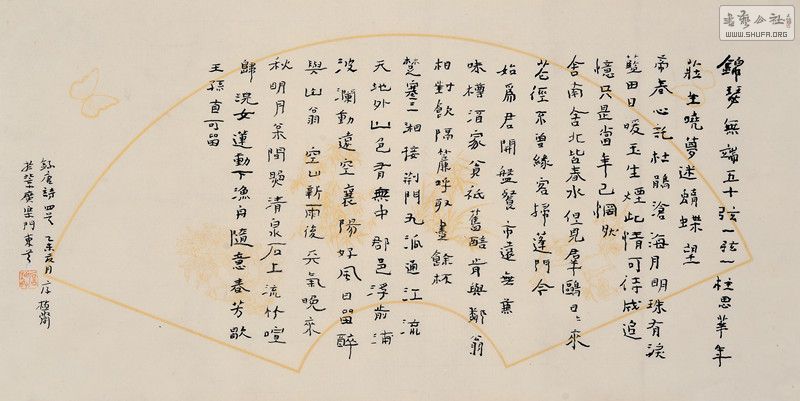 錦瑟無端五十弦一弦一柱思華年
莊生曉夢迷蝴蝶望
帝春心託杜鵑滄海月明珠有淚
藍田日暖玉生煙此情可待成追
憶只是當年已惘然
舍南舍北皆春水但見群鷗日〻來
花徑不曾緣客掃蓬門今
始為君開盤餐市遠無兼
味樽酒家貧祇舊醅肯與鄰翁
相對飲隔籬呼取盡餘杯
楚塞三湘接荊門九派通江流
天地外山色有無中郡邑浮前浦
波瀾動遠空襄陽好風日留醉
與山翁 空山新雨後天氣晚來
秋明月松間照清泉石上流竹喧
歸浣女蓮動下漁舟隨意春芳歇
王孫自可留
錄唐詩四首
WWW.SHUFA.ORG